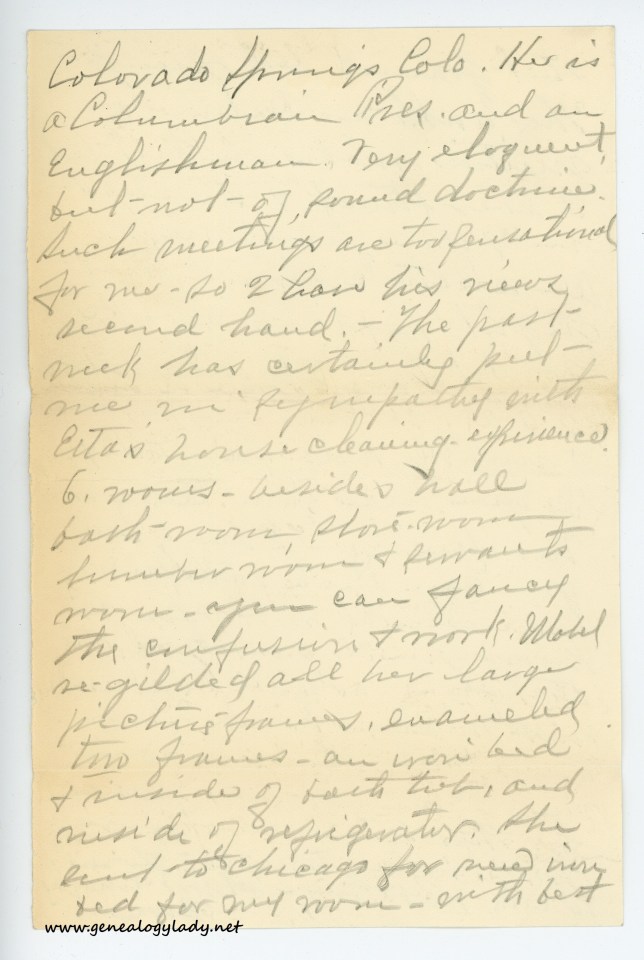 Colorado Springs Colo. He is
a Columbrain Pres. and an
Englishman. Very eloquent,
but not of sound doctrine.
Such meetings are too sensational
for me - so I have his views
second hand. - The past
week has certainly put
me in sympathy with
Etta's house cleaning experience.
6. rooms - besides hall
bath-room, store-room
lumber room & servants
room - you can fancy
the confusion & work. Mabel
re-gilded all her large
picture frames, enameled
two frames - an iron bed
& inside of bath tub, and
inside of refrigerator. She
sent to Chicago for new iron
bed for my room - with best
www.genealogylady.net